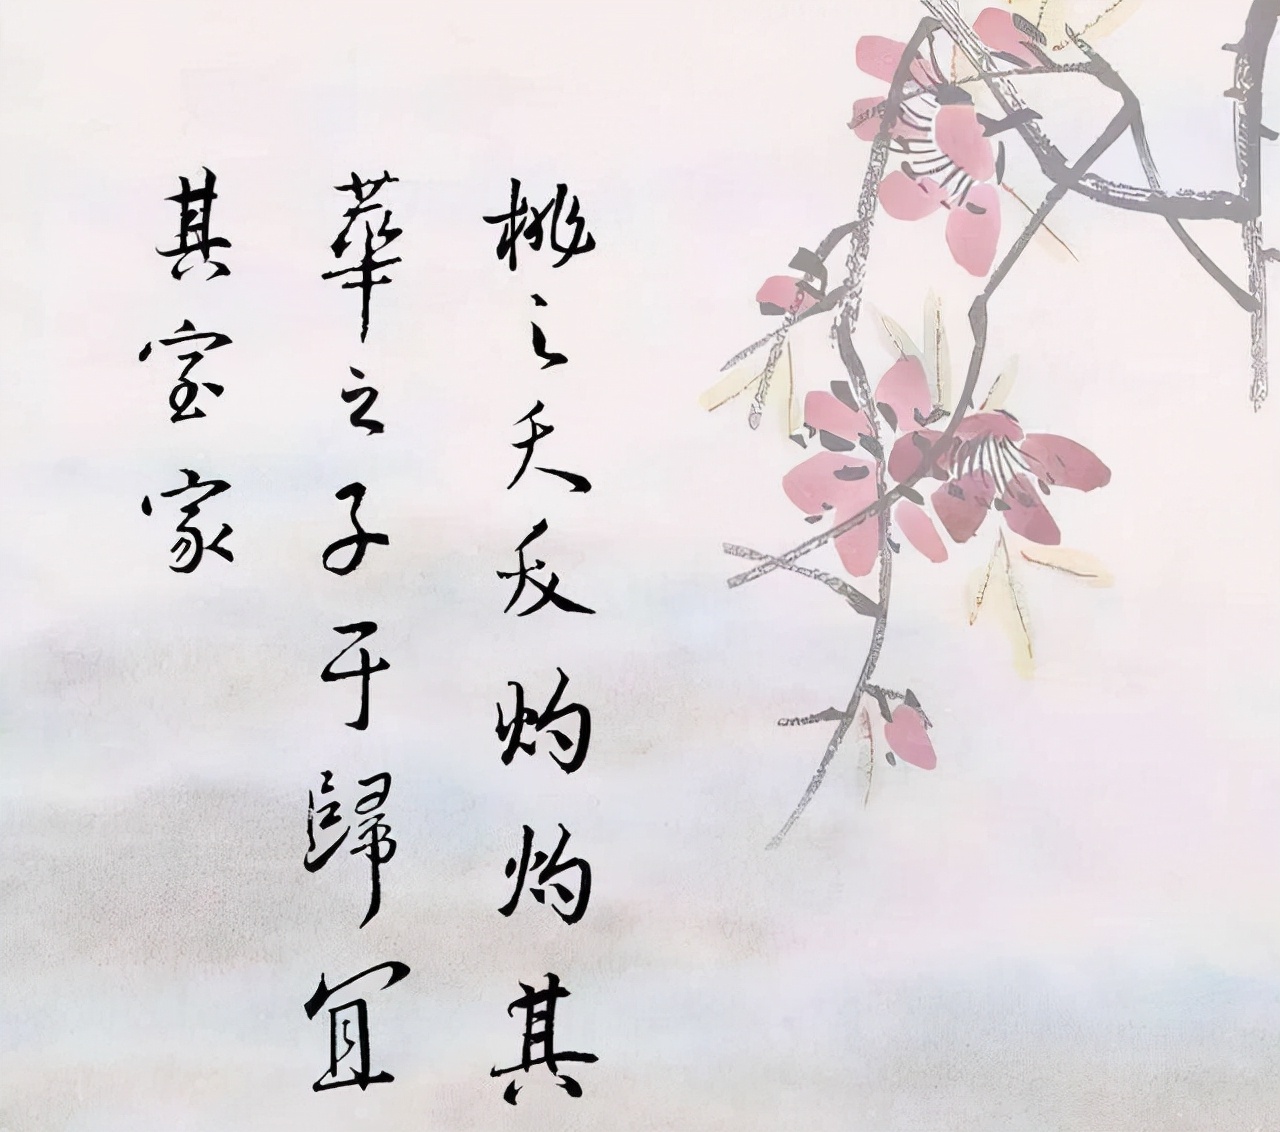 桃之夭夭灼灼其
華之子于歸宜
其室家